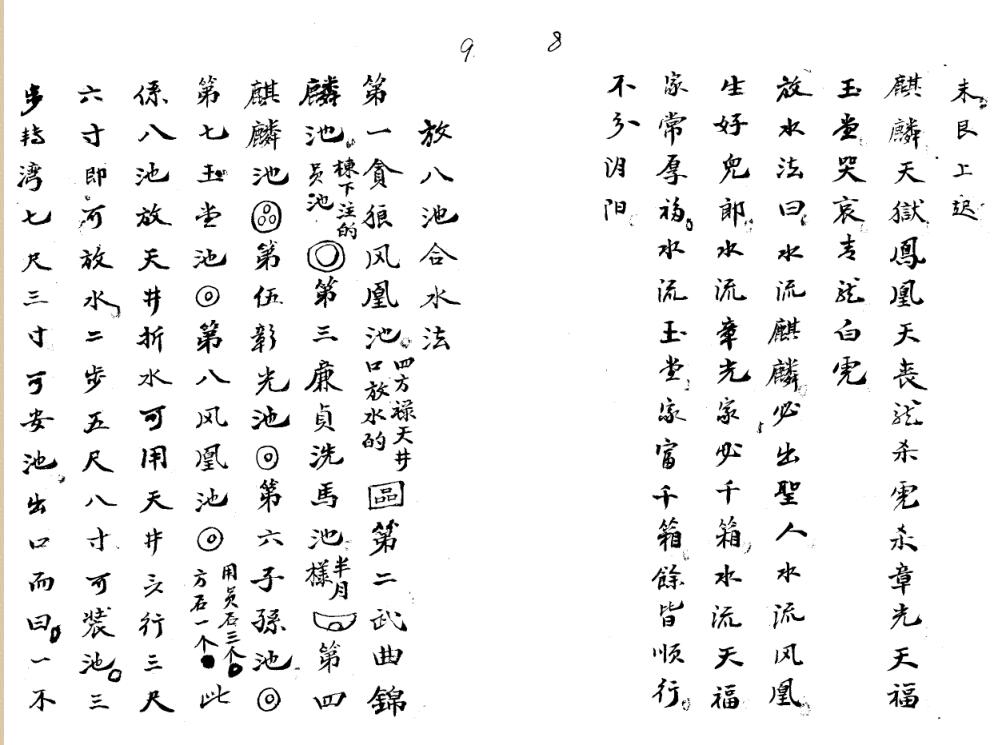 8
未艮上退
麒麟天獄鳳凰天丧龙杀虎杀章光天福
玉堂哭哀青龙白虎
放水法曰水流麒麟必出聖人水流风凰
生好兒郎水流章光家必千箱水流天福
家常厚福水流玉堂家富千箱餘皆順行
不分阴阳
9
放八池合水法
第一貪狼风凰池四方禄天井口放水的第二武曲錦
麟池棟下注的员池第三廉貞洗馬池半月様第四
麒麟池第伍彰光池第六子孫池
第七玉堂池第八风凰池用员石三个方石一个此
係八池放天井折水可用天井六行三尺
六寸即可放水二步五尺八寸可装池三
步转湾七尺三寸可安池出口而曰一不